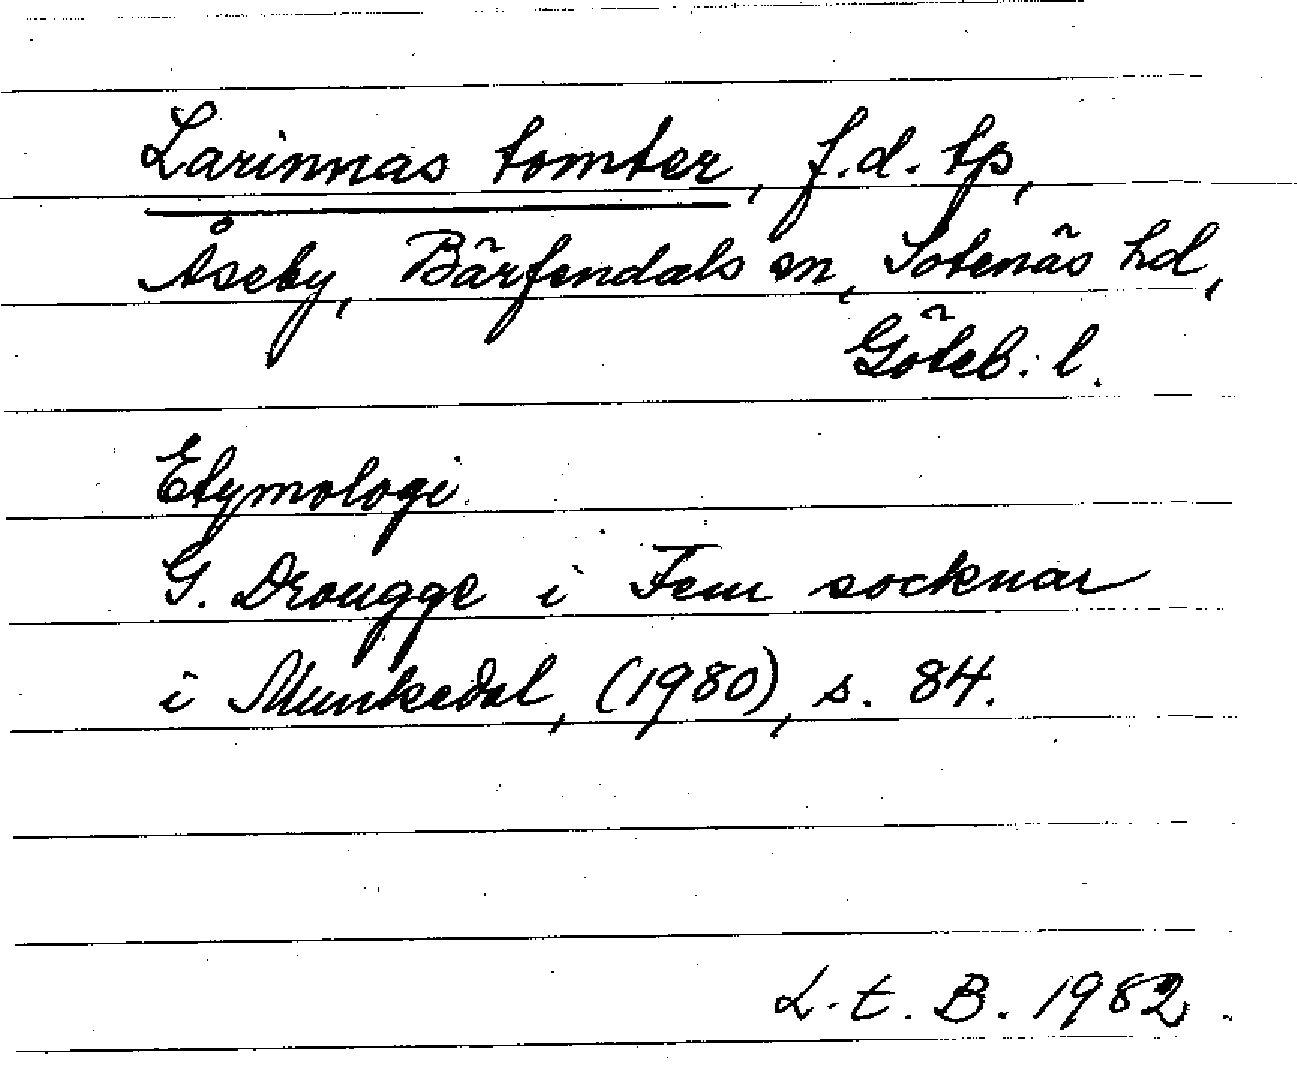 Larinnas tomter, f.d. tp,
Åseby, Bärfendals sn, Sotenäs hd,
Göteb. l.
Etymologi.
G. Drougge i Fem socknar
i Munkedal, (1980), s. 84.
L. t. B. 1982.